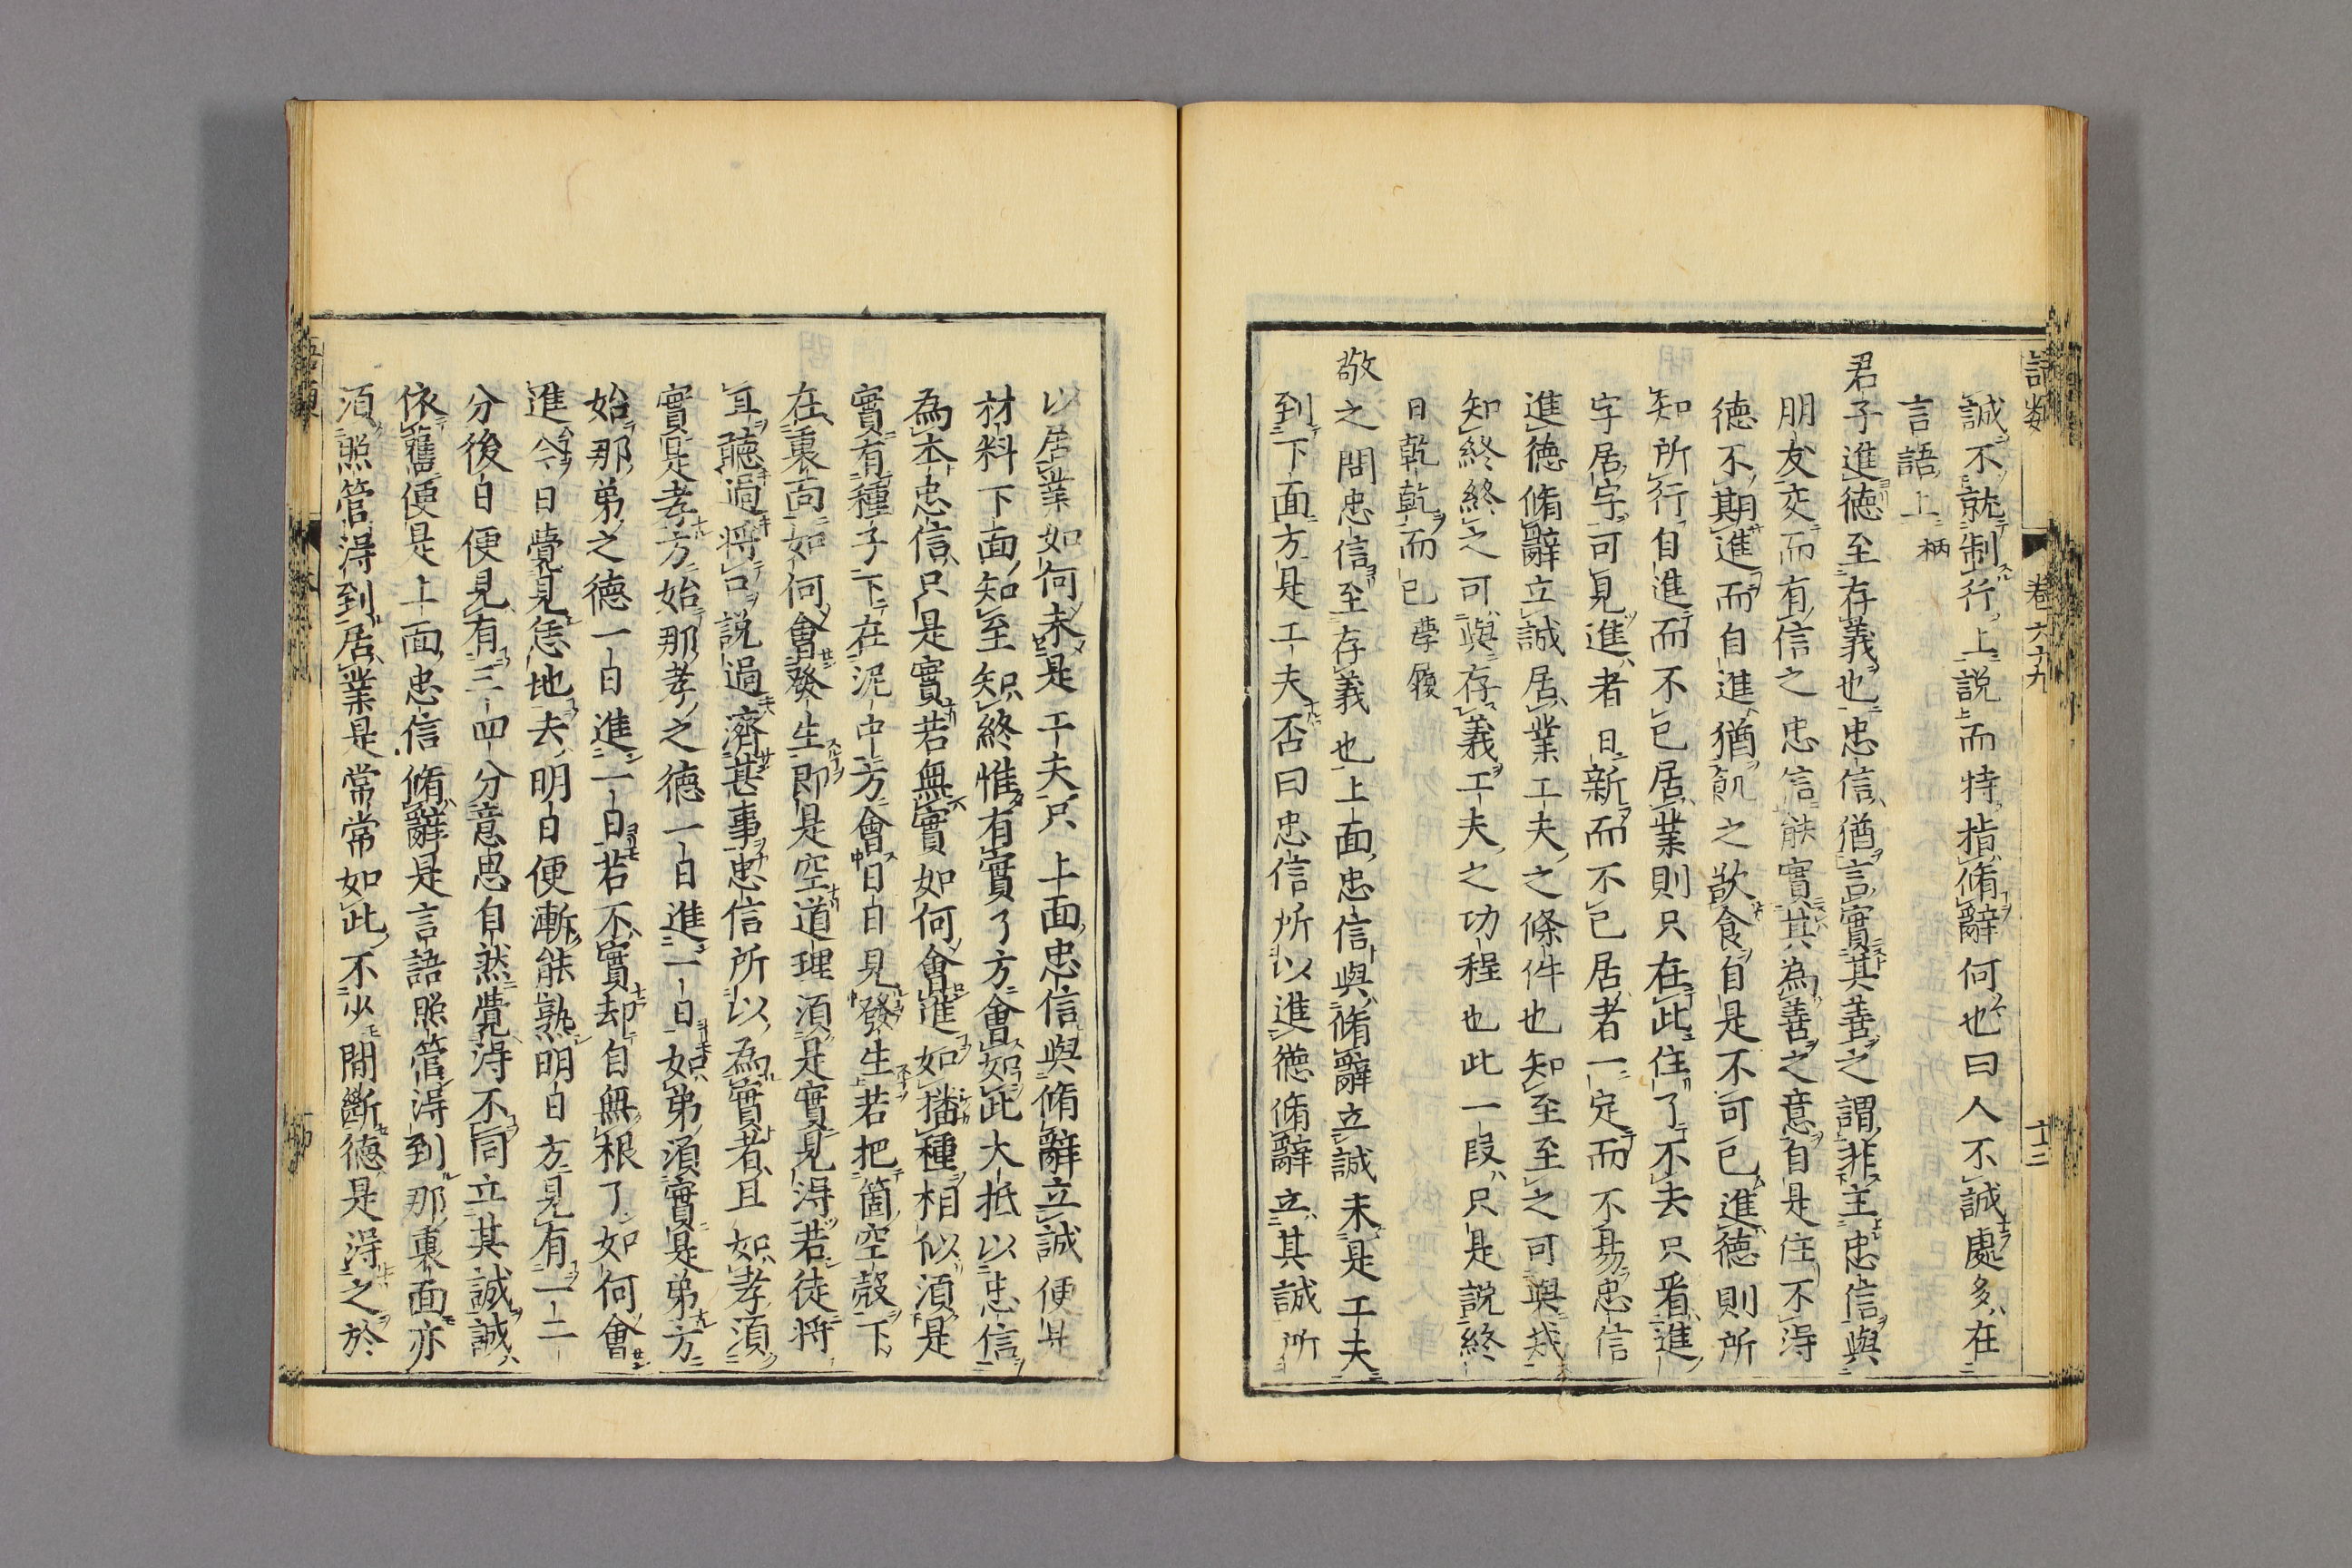 語類 卷六十九 十三
誠不就制行上説而特指脩辭何也曰人不誠處多在
言語上柄
君子進德至存義也忠信猶言實其善之謂非主忠信與
朋友交而有信之忠信能實其為善之意自是住不得
德不期進而自進猶飢之欲食自是不可已進德則所
知所行自進而不已居業則只在此住了不去只看進
字居字可見進者日新而不已居者一定而不易忠信
進德脩辭立誠居業工夫之條件也知至至之可與幾
知終終之可與存義工夫之功程也此一段只是説終
日乾乾而已學履
敬之問忠信至存義也上面忠信與脩辭立誠未是工夫
到下面方是工夫否曰忠信所以進德脩辭立其誠所
以居業如何未是工夫只上面忠信與脩辭立誠便是
材料下面知至知終惟有實了方會如此大抵以忠信
為本忠信只是實若無實如何會進如播種相似須是
實有種子下在泥中方會日日見發生若把箇空殼下
在裏面如何會發生即是空道理須是實見得若徒將
耳聽過將口説過濟甚事忠信所以為實者且如孝須
實是孝方始那孝之德一日進一日如弟須實是弟方
始那弟之德一日進一日若不實却自無根了如何會
進今日覺見恁地去明日便漸能熟明日方見有一二
分後日便見有三四分意思自然覺得不同立其誠誠
依舊便是上面忠信脩辭是言語照管得到那裏面亦
須照管得到居業是常常如此不少間斷德是得之於